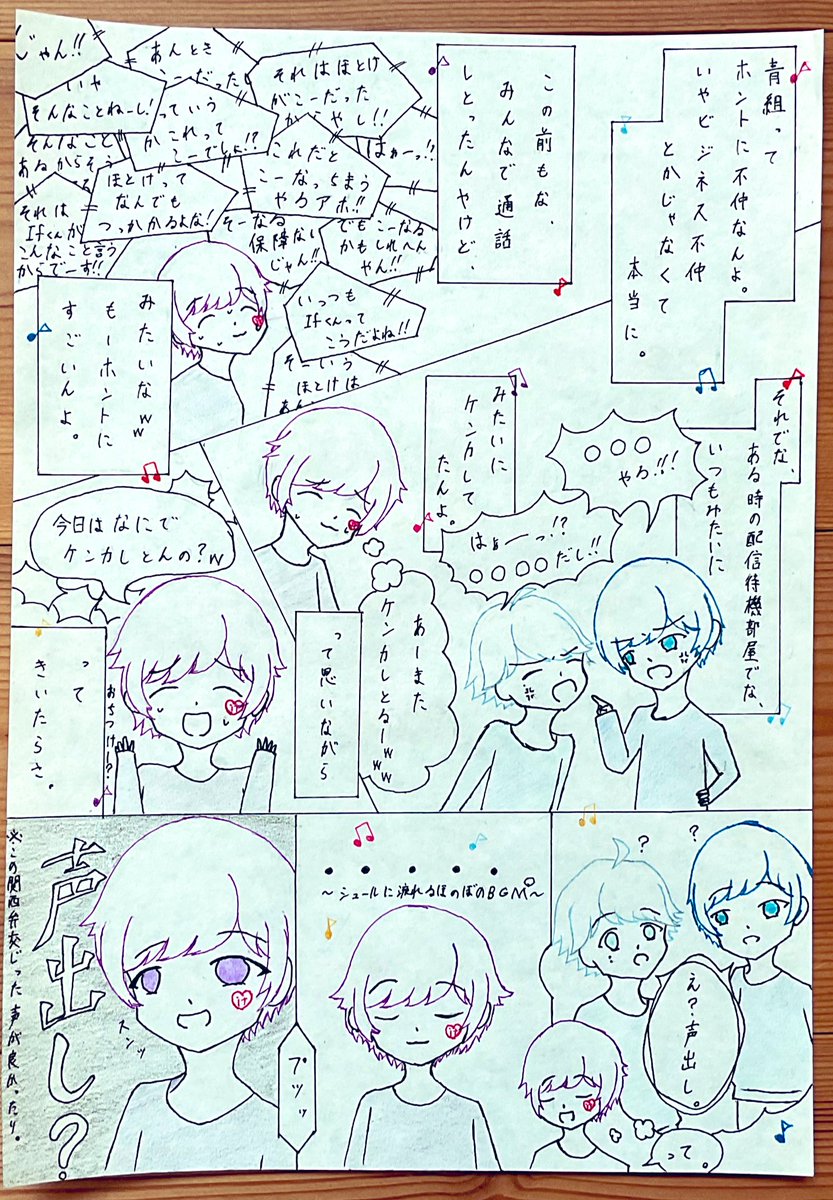 青組って
ホントに不仲なんよ。
いやビジネス不仲
とかじゃなくて
本当に。
この前もな、
みんなで通話
しとったんやけど、
それはほとけ
がこーだった
からやし!!
あんとき
こーだった
じゃん!!
いや
そんなことねーし!
っていう
かこれって
こーでしょ!?
はぁーっ!!
これだと
こーなっちまう
やろアホ!!
そんなこと
あるからそう
ほとけって
なんでも
つっかかるよな!
それは
Ifくんが
こんなこと言う
からでーす!!
そーなる
保障ない
じゃん!!
でもこーなる
かもしれへん
やん!!
いっつも
Ifくんって
こうだよね!!
そーいう
ほとけは
あん
みたいなww
もーホントに
すごいんよ。
それでな、
ある時の配信待機部屋でな、
いつもみたいに
○○○
やろ!!!
はぁーっ!?
○○○○だし!!
みたいに
ケンカして
たんよ。
あーまた
ケンカしとるーww
って思いながら
今日はなにで
ケンカしとんの?w
おちつけ?
って
きいたらさ。
?
?
え?声出し。
って。
・・・・・
~シュールに流れるほのぼのBGM~
プツッ
声出し?
スンッ
※この関西弁交じった声が良かったり。